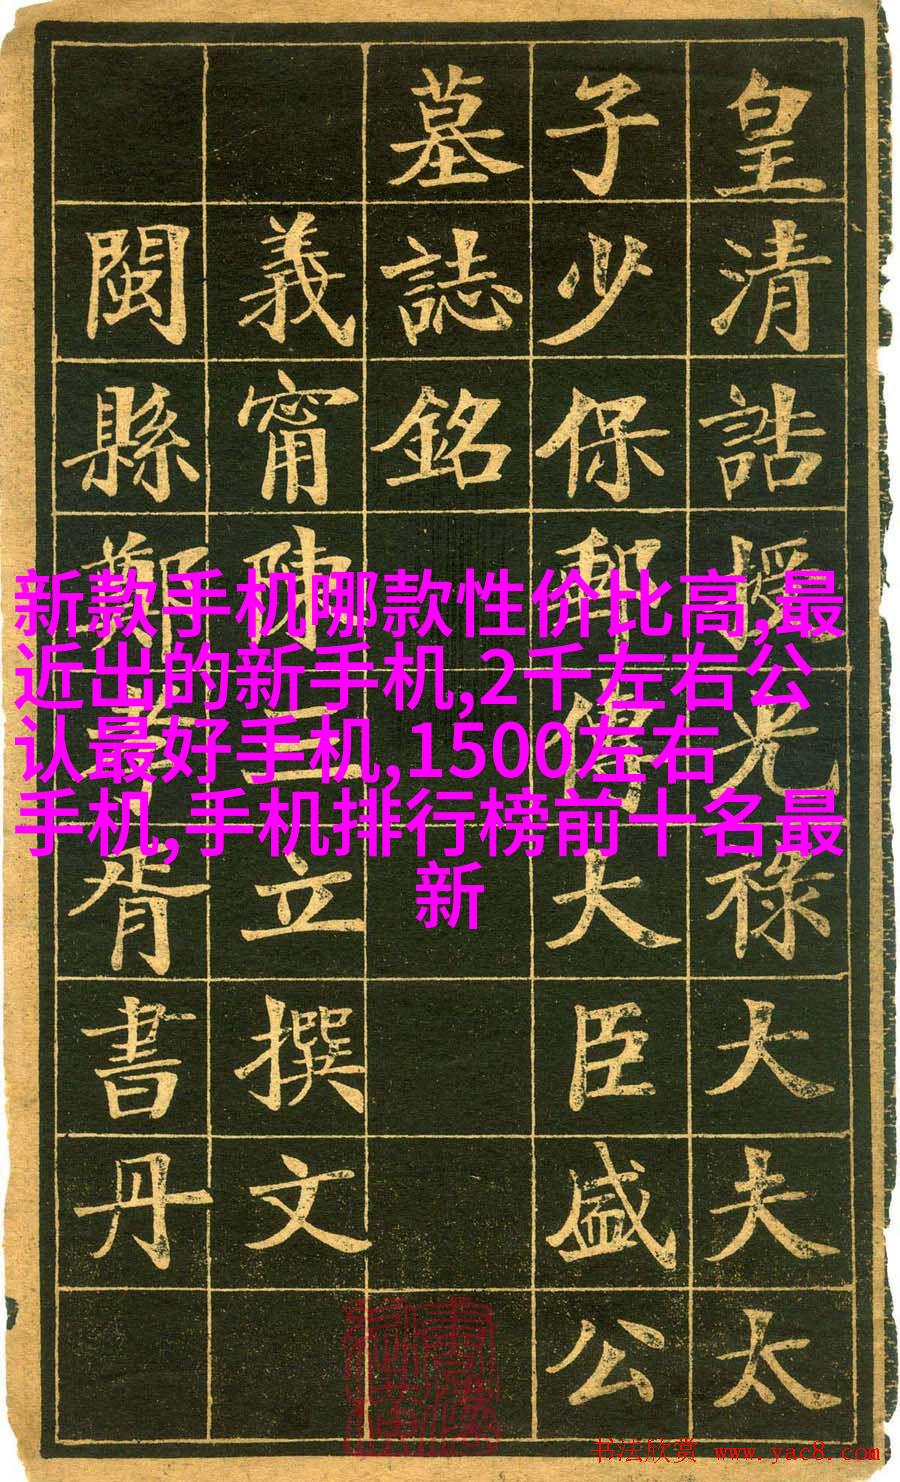 皇清誥授光祿大夫太
子少保郵傳大臣盛公
墓誌銘
義甯陳三立撰文
閩縣鄭孝胥書丹
新款手机哪款性价比高,最
近出的新手机,2千左右公
认最好手机,1500左右
手机,手机排行榜前十名最
新
书法欣赏 www.yac8.com